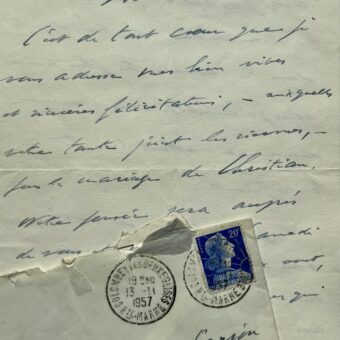 C'est de tout cœur que je
vous adresse mes bien vives
et sincères félicitations, – auxquelles
votre tante joint les siennes, –
pour le mariage de Christian.
Notre pensée sera auprès
de vous
samedi
COLOMBEY-LES-DEUX-EGLISES
13 -11
1957
HTE-MARNE
20F
HTE-MARNE